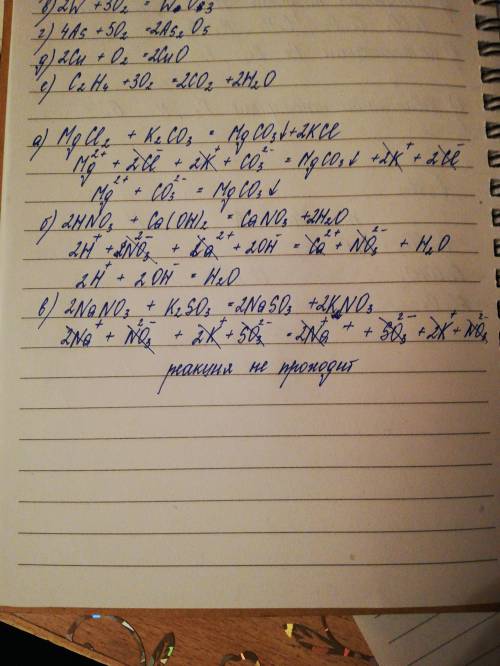 в) 2W + 3O₂ = W₂O₃
г) 4As + 5O₂ = 2As₂O₅
д) 2Cu + O₂ = 2CuO
е) C₂H₄ + 3O₂ = 2CO₂ + 2H₂O
а) MgCl₂ + K₂CO₃ = MgCO₃↓ + 2KCl
Mg²⁺ + 2Cl⁻ + 2K⁺ + CO₃²⁻ = MgCO₃↓ + 2K⁺ + 2Cl⁻
Mg²⁺ + CO₃²⁻ = MgCO₃↓
б) 2HNO₃ + Ca(OH)₂ = CaNO₃ + 2H₂O
2H⁺ + 2NO₃²⁻ + Ca²⁺ + 2OH⁻ = Ca²⁺ + NO₃²⁻ + H₂O
2H⁺ + 2OH⁻ = H₂O
в) 2NaNO₃ + K₂SO₃ = 2NaSO₃ + 2KNO₃
2Na⁺ + NO₃²⁻ + 2K⁺ + SO₃²⁻ = 2Na⁺ + SO₃²⁻ + 2K⁺ + NO₃²⁻
реакция не проходит